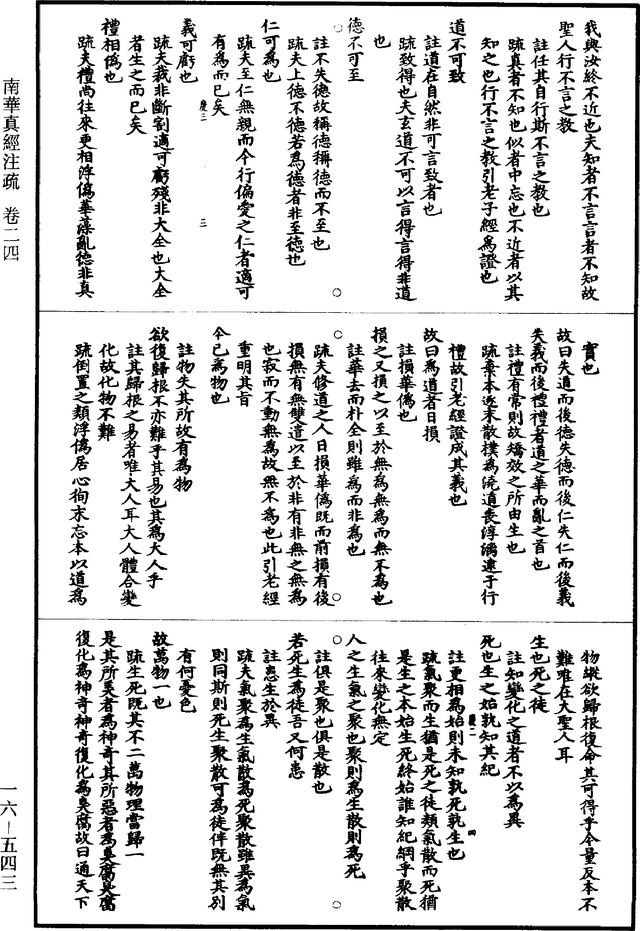 我與汝終不近也夫知者不言言者不知故
聖人行不言之教
註任其自行斯不言之教也
疏真者不知也似者中忘也不近者以其
知之也行不言之教引老子經為證也
道不可致
註道在自然非可言致者也
疏致得也夫玄道不可以言得言得非道
也
德不可至
註不失德故稱德稱德而不至也
疏夫上德不德若為德者非至德也
仁可為也
疏夫至仁無親而今行偏愛之仁者適可
有為而已矣
義可虧也
疏夫裁非斷割適可虧殘非大全也大全
者生之而已矣
禮相偽也
疏夫禮尚往來更相浮偽華藻亂德非真
實也
故曰失道而後德失德而後仁失仁而後義
失義而後禮禮者道之華而亂之首也
註禮有常則故矯效之所由生也
疏棄本逐末散樸為澆道喪淳漓逮于行
禮故引老經證成其義也
故曰為道者日損
註損華偽也
損之又損之以至於無為無為而無不為也
註華去而朴全則雖為而非為也
疏夫修道之人日損華偽既而前損有後
損無有無雙遣以至於非有非無之無為
也寂而不動無為故無不為也此引老經
重明其旨
今已為物也
註物失其所故有為物
欲復歸根不亦難乎其易也其為大人乎
註其歸根之易者唯大人耳大人體合變
化故化物不難
疏倒置之類浮偽居心徇末忘本以道為
物縱欲歸根復命其可得乎今量反本不
難唯在大聖人耳
生也死之徒
註知變化之道者不以為異
死也生之始孰知其紀
註更相為始則未知孰死孰生也
疏氣聚而生猶是死之徒類氣散而死猶
是生之本始生死終始誰知紀綱乎聚散
往來變化無定
人之生氣之聚也聚則為生散則為死
註俱是聚也俱是散也
若死生為徒吾又何患
註患生於異
疏夫氣聚為生氣散為死聚散雖異為氣
則同斯則死生聚散可為徒伴既無其別
有何憂色
故萬物一也
疏生死既其不二萬物理當歸一
是其所美者為神奇其所惡者為臭腐臭腐
復化為神奇神奇復化為臭腐故曰通天下
南華真經注疏 卷二四
一六—五四三